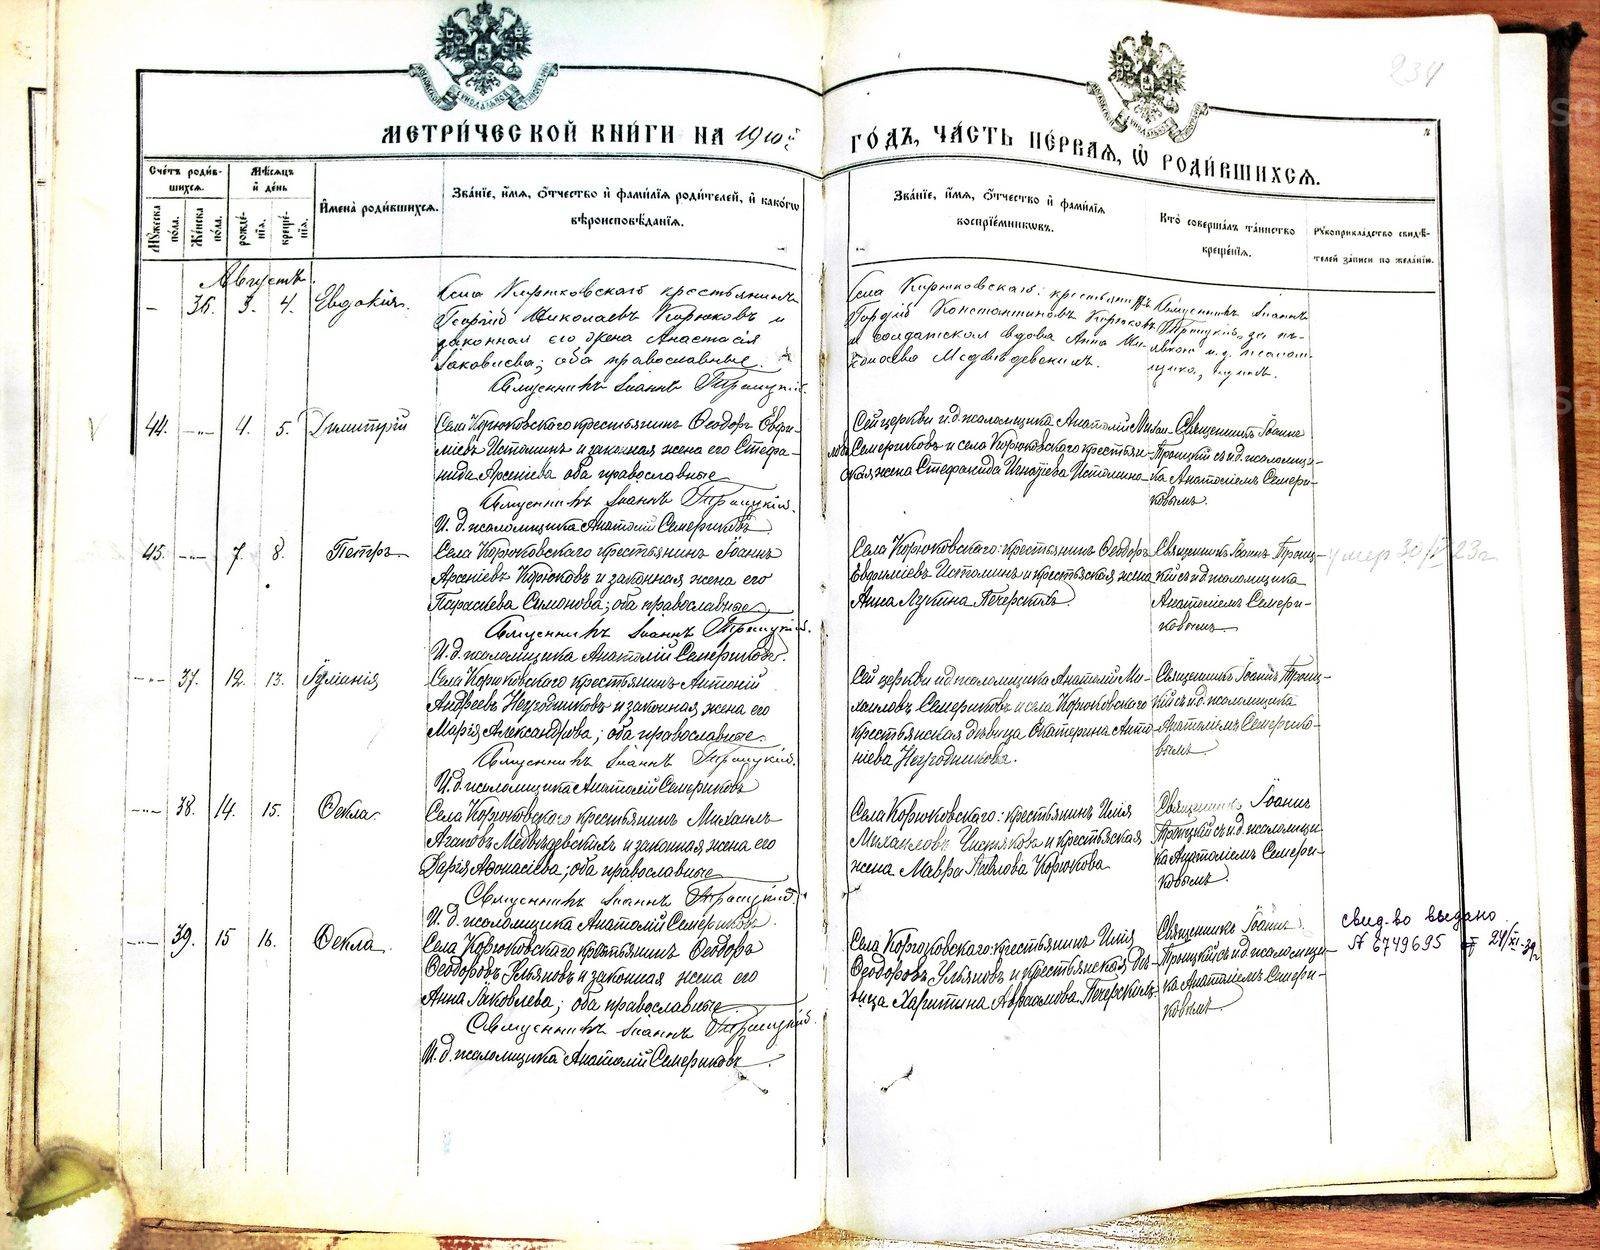 234
МЕТРИ́ЧЕСКОЙ КНИ́ГИ НА 1910 й
ГО́ДЪ, ЧА́СТЬ ПЕ́РВАЯ, Ѡ҆ РОДИ́ВШИХСЯ.
Сче́тъ роди́в-
шихся.
Му́жеска
по́ла.
Же́нска
по́ла.
Мѣ́сяцъ
и҆ де́нь
рожде́-
нїя.
креще́-
нїя.
И҆мена̀ роди́вшихся.
Зва́нїе, и҆́мя, ѻ҆́тчество и҆ фами́лїя роди́телей, и҆ како́гѡ
вѣроисповѣ́данїя.
Зва́нїе, и҆́мя, ѻ҆́тчество и҆ фами́лїя
воспрїе́мниковъ.
Кто̀ соверша́лъ та́инство
креще́нїя.
Рꙋкоприкла́дство свидѣ́-
телей за́писи по жела́нїю.
Августъ
— 36. 3. 4. Евдокія.
Села Корюковскаго крестьянинъ
Георгій Николаевъ Корюковъ и
законная его жена Анастасія
Іаковлева; оба православные.
Священникъ Іоаннъ Троицкій.
Села Корюковскаго: крестьянинъ
Гордій Константиновъ Корюковъ
и солдатская вдова Анна
Медвѣдевскихъ.
Священникъ Іоаннъ
Троицкій, за
44. —"— 4. 5. Димитрій
Села Корюковскаго крестьянинъ Ѳеодоръ Евфи-
міевъ Истоминъ и законная жена его Стефа-
нида Арсеніева оба православные
Священникъ Іоаннъ Троицкій.
И. д. псаломщика Анатолій Семериковъ
Сей церкви и. д. псаломщика Анатолій Михаи-
ловъ Семериковъ и села Корюковскаго крестьян-
ская жена Стефанида Игнатіева Истомина
Священникъ Іоаннъ
Троицкій съ и. д. псаломщи-
ка Анатоліемъ Семери-
ковымъ.
45. —"— 7. 8. Петръ
Села Корюковскаго крестьянинъ Іоаннъ
Арсеніевъ Корюковъ и законная жена его
Параскева Симонова; оба православные
Священникъ Іоаннъ Троицкій.
И. д. псаломщика Анатолій Семериковъ.
Села Корюковскаго: крестьянинъ Ѳеодоръ
Евфиміевъ Истоминъ и крестьянская жена
Анна Лукина Печерскихъ.
Священникъ Іоаннъ Троиц-
кій съ и д псаломщика
Анатоліемъ Семери-
ковымъ.
умер 30/IV 23 г
—"— 37. 12. 13. Іуліанія
Села Корюковскаго крестьянинъ Антоній
Андреевъ Негодниковъ и законная жена его
Марія Александрова; оба православные.
Священникъ Іоаннъ Троицкій.
И. д. псаломщика Анатолій Семериковъ
Сей церкви и д псаломщика Анатолій Ми-
хаиловъ Семериковъ и села Корюковскаго
крестьянская дѣвица Екатерина Анто-
ніева Негодникова.
Священникъ Іоаннъ Троиц-
кій съ и д. псаломщика
Анатоліемъ Семерико-
вымъ
—"— 38. 14. 15. Ѳекла
Села Корюковскаго крестьянинъ Михаилъ
Агаповъ Медвѣдевскихъ и законная жена его
Дарія Аѳонасіева; оба православные
Священникъ Іоаннъ Троицкій.
И. д. псаломщика Анатолій Семериковъ
Села Корюковскаго: крестьянинъ Илія
Михаиловъ Чистяковъ и крестьянская
жена Мавра Павлова Корюкова
Священникъ Іоаннъ
Троицкій съ и. д. псаломщи-
ка Анатоліемъ Семери-
ковымъ.
—"— 39. 15 16. Ѳекла
Села Корюковскаго крестьянинъ Ѳеодоръ
Ѳеодоровъ Ульяновъ и законная жена его
Анна Іаковлева; оба православные.
Священникъ Іоаннъ Троицкій.
И. д. псаломщика Анатолій Семериковъ
Села Корюковскаго: крестьянинъ Илія
Ѳеодоровъ Ульяновъ и крестьянская дѣ-
вица Харитина Авраамова Печерскихъ.
Священникъ Іоаннъ
Троицкій съ и. д. псаломщи-
ка Анатоліемъ Семери-
ковымъ
свид-во выдано
№ 6749695 от 24/XI-39 г